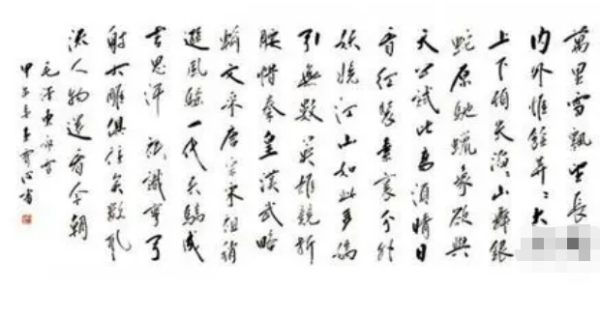 萬里雪飄望長
内外惟餘莽〻大
上下頓失滔〻山舞銀
蛇原馳蠟象欲與
天公試比高須晴日
看紅裝素裹分外
妖嬈江山如此多嬌
引無數英雄競折
腰惜秦皇漢武略
輸文采唐宗宋祖稍
遜風騷一代天驕成
吉思汗祇識彎弓
射大雕俱往矣數風
流人物還看今朝
毛澤東
甲午年